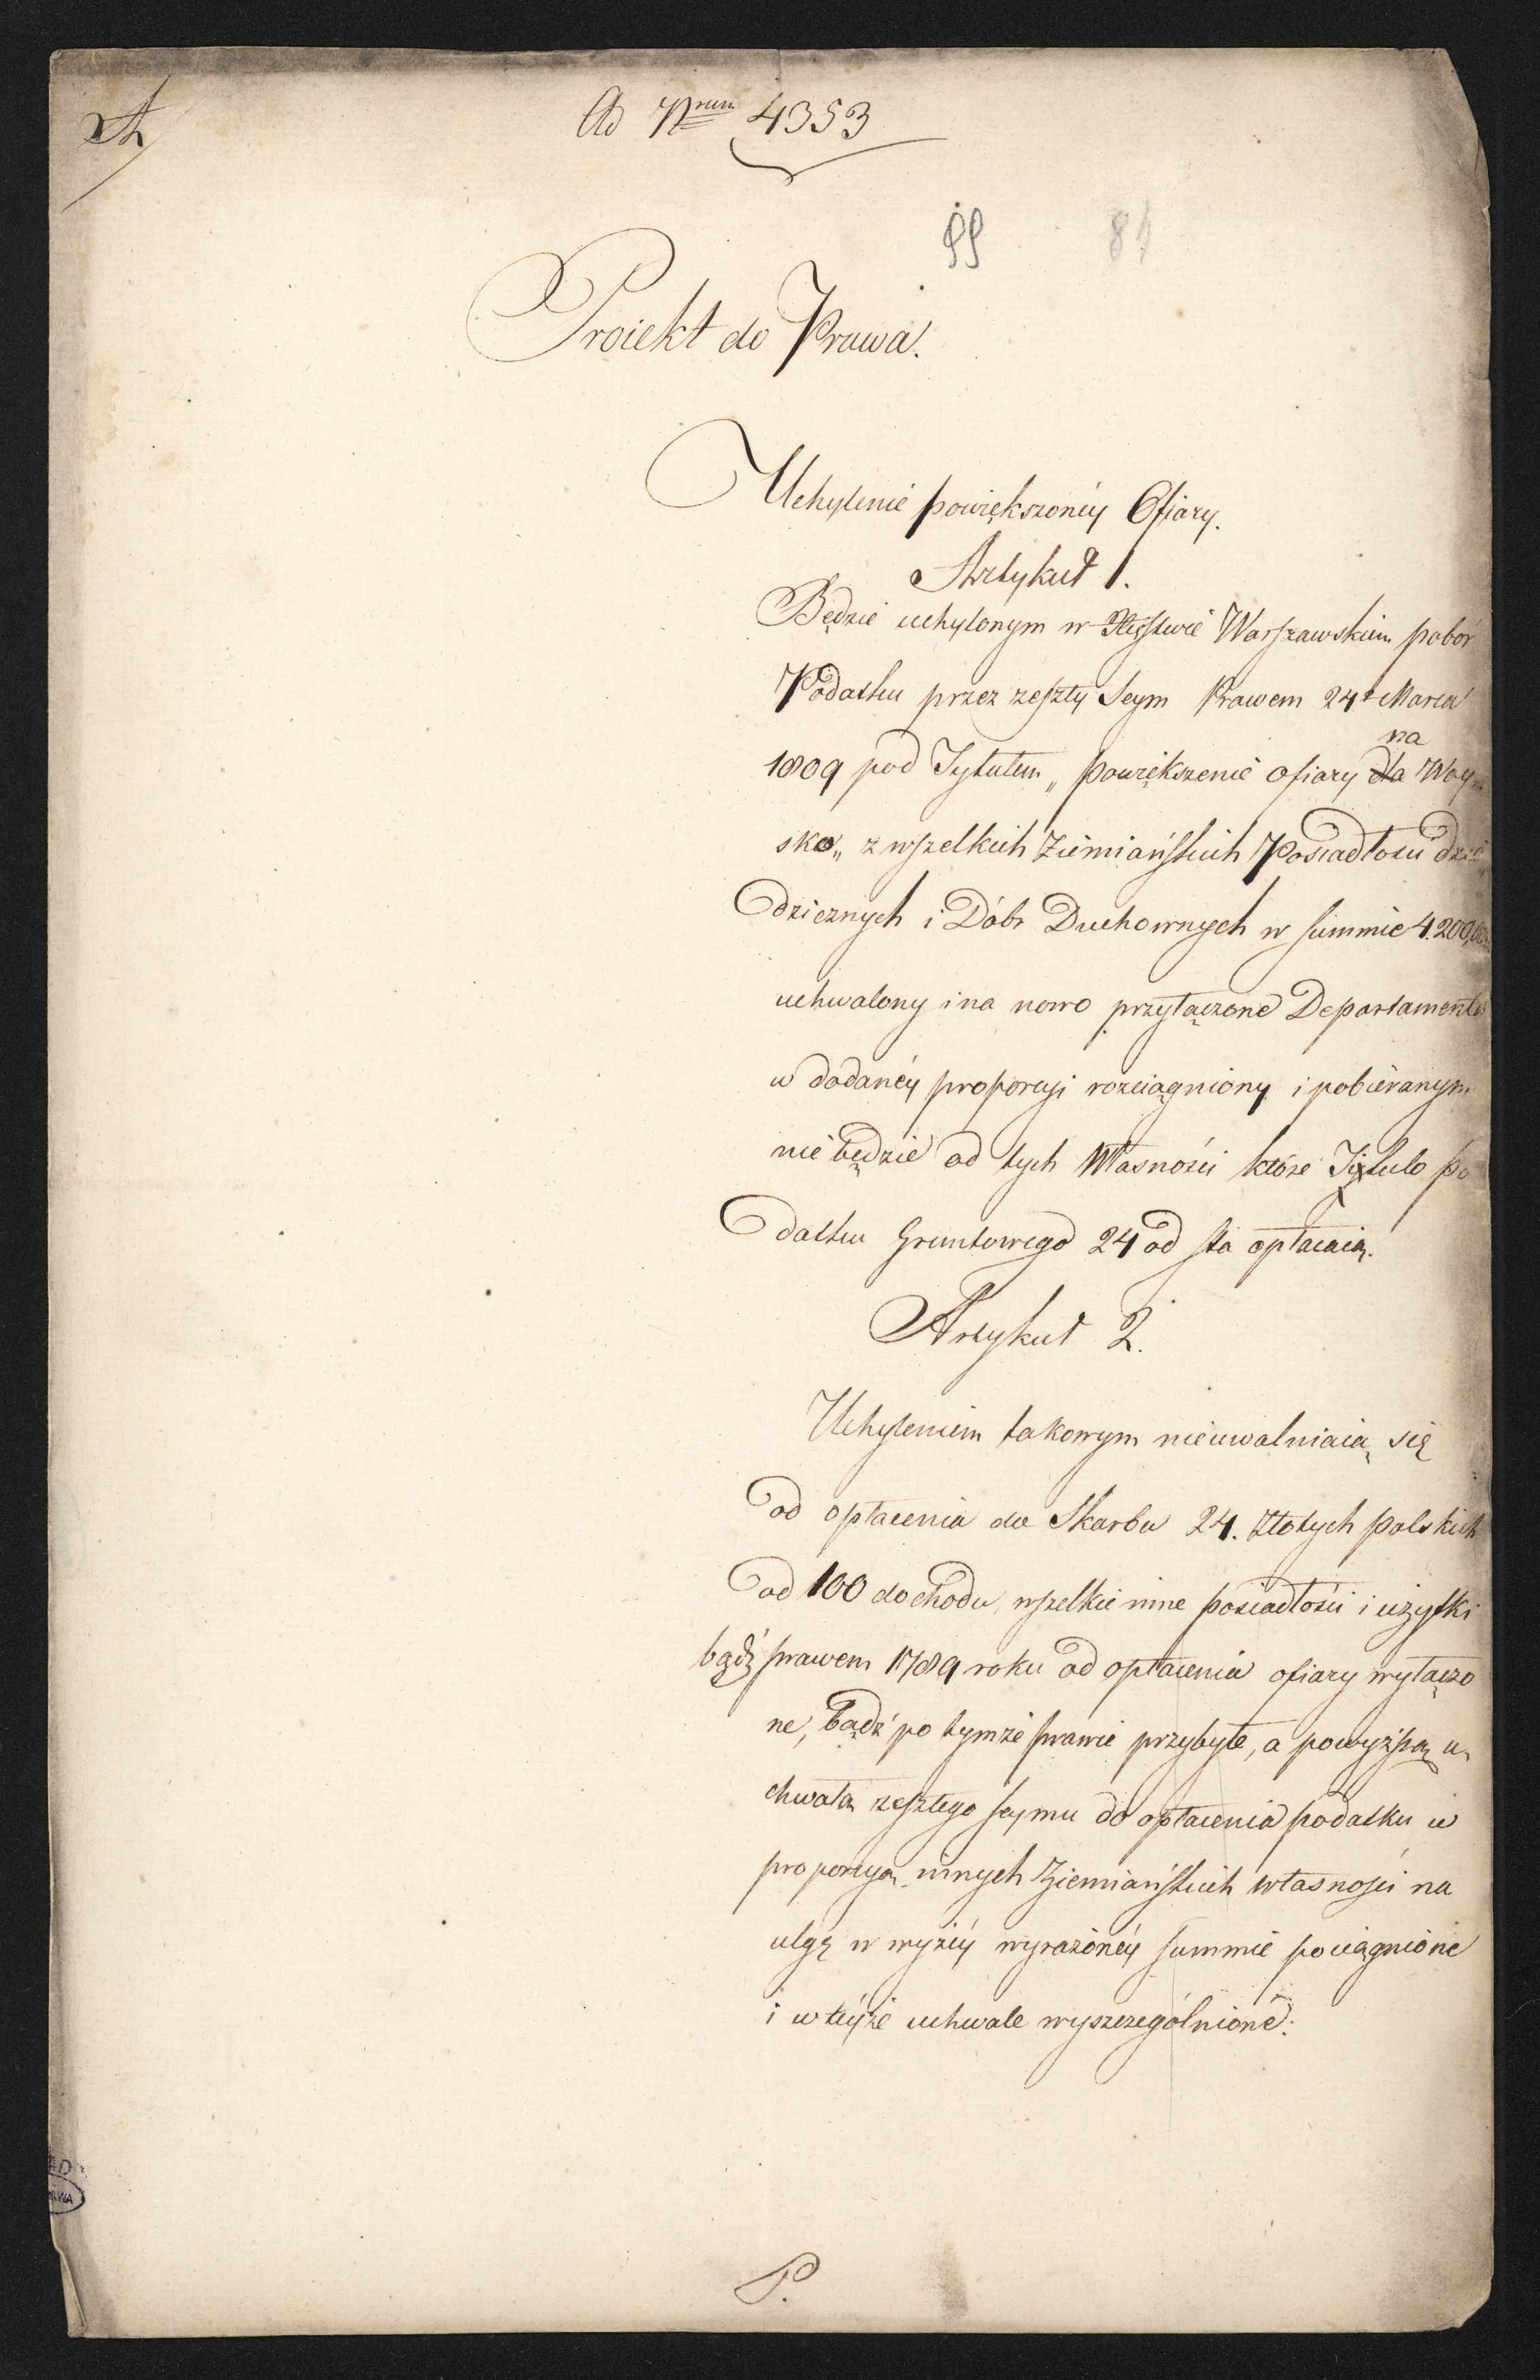 A
Ad Nrum 4353
99 81
Proiekt do Prawa.
Uchylenie powiększonéy Ofiary.
Artykuł 1.
Będzie uchylonym w Xięstwie Warszawskiem pobór
Podatku przez zeszły Seym Prawem 24º Marca
1809 pod Tytułem „ powiększenie ofiary dla na Woy
sko „ z wszelkich Ziemiańskich Posiadłości dzie
dzicznych i Dóbr Duchownych w summie 4.200,000
uchwalony i na nowo przyłączone Departamenta
w dodanéy proporcyi rozciągniony i pobieranym
nie będzie od tych Własności które Tytulo po
datku Gruntowego 24 od sta opłacaią.
Artykuł 2.
Uchyleniem takowym nieuwalniaią się
od opłacenia do Skarbu 24. Złotych polskich
od 100 dochodu, wszelkie inne posiadłości i użytki
bądź prawem 1789 roku od opłacenia ofiary wyłączo
ne, bądź po tymże prawie przybyłe, a powyższą u-
chwałą zeszłego seymu do opłacenia podatku w
proporcyą innych Ziemiańskich własności na
ulgę w wyżéy wyrażonéy summie pociągnione
i w téyże uchwale wyszczególnione.
P.